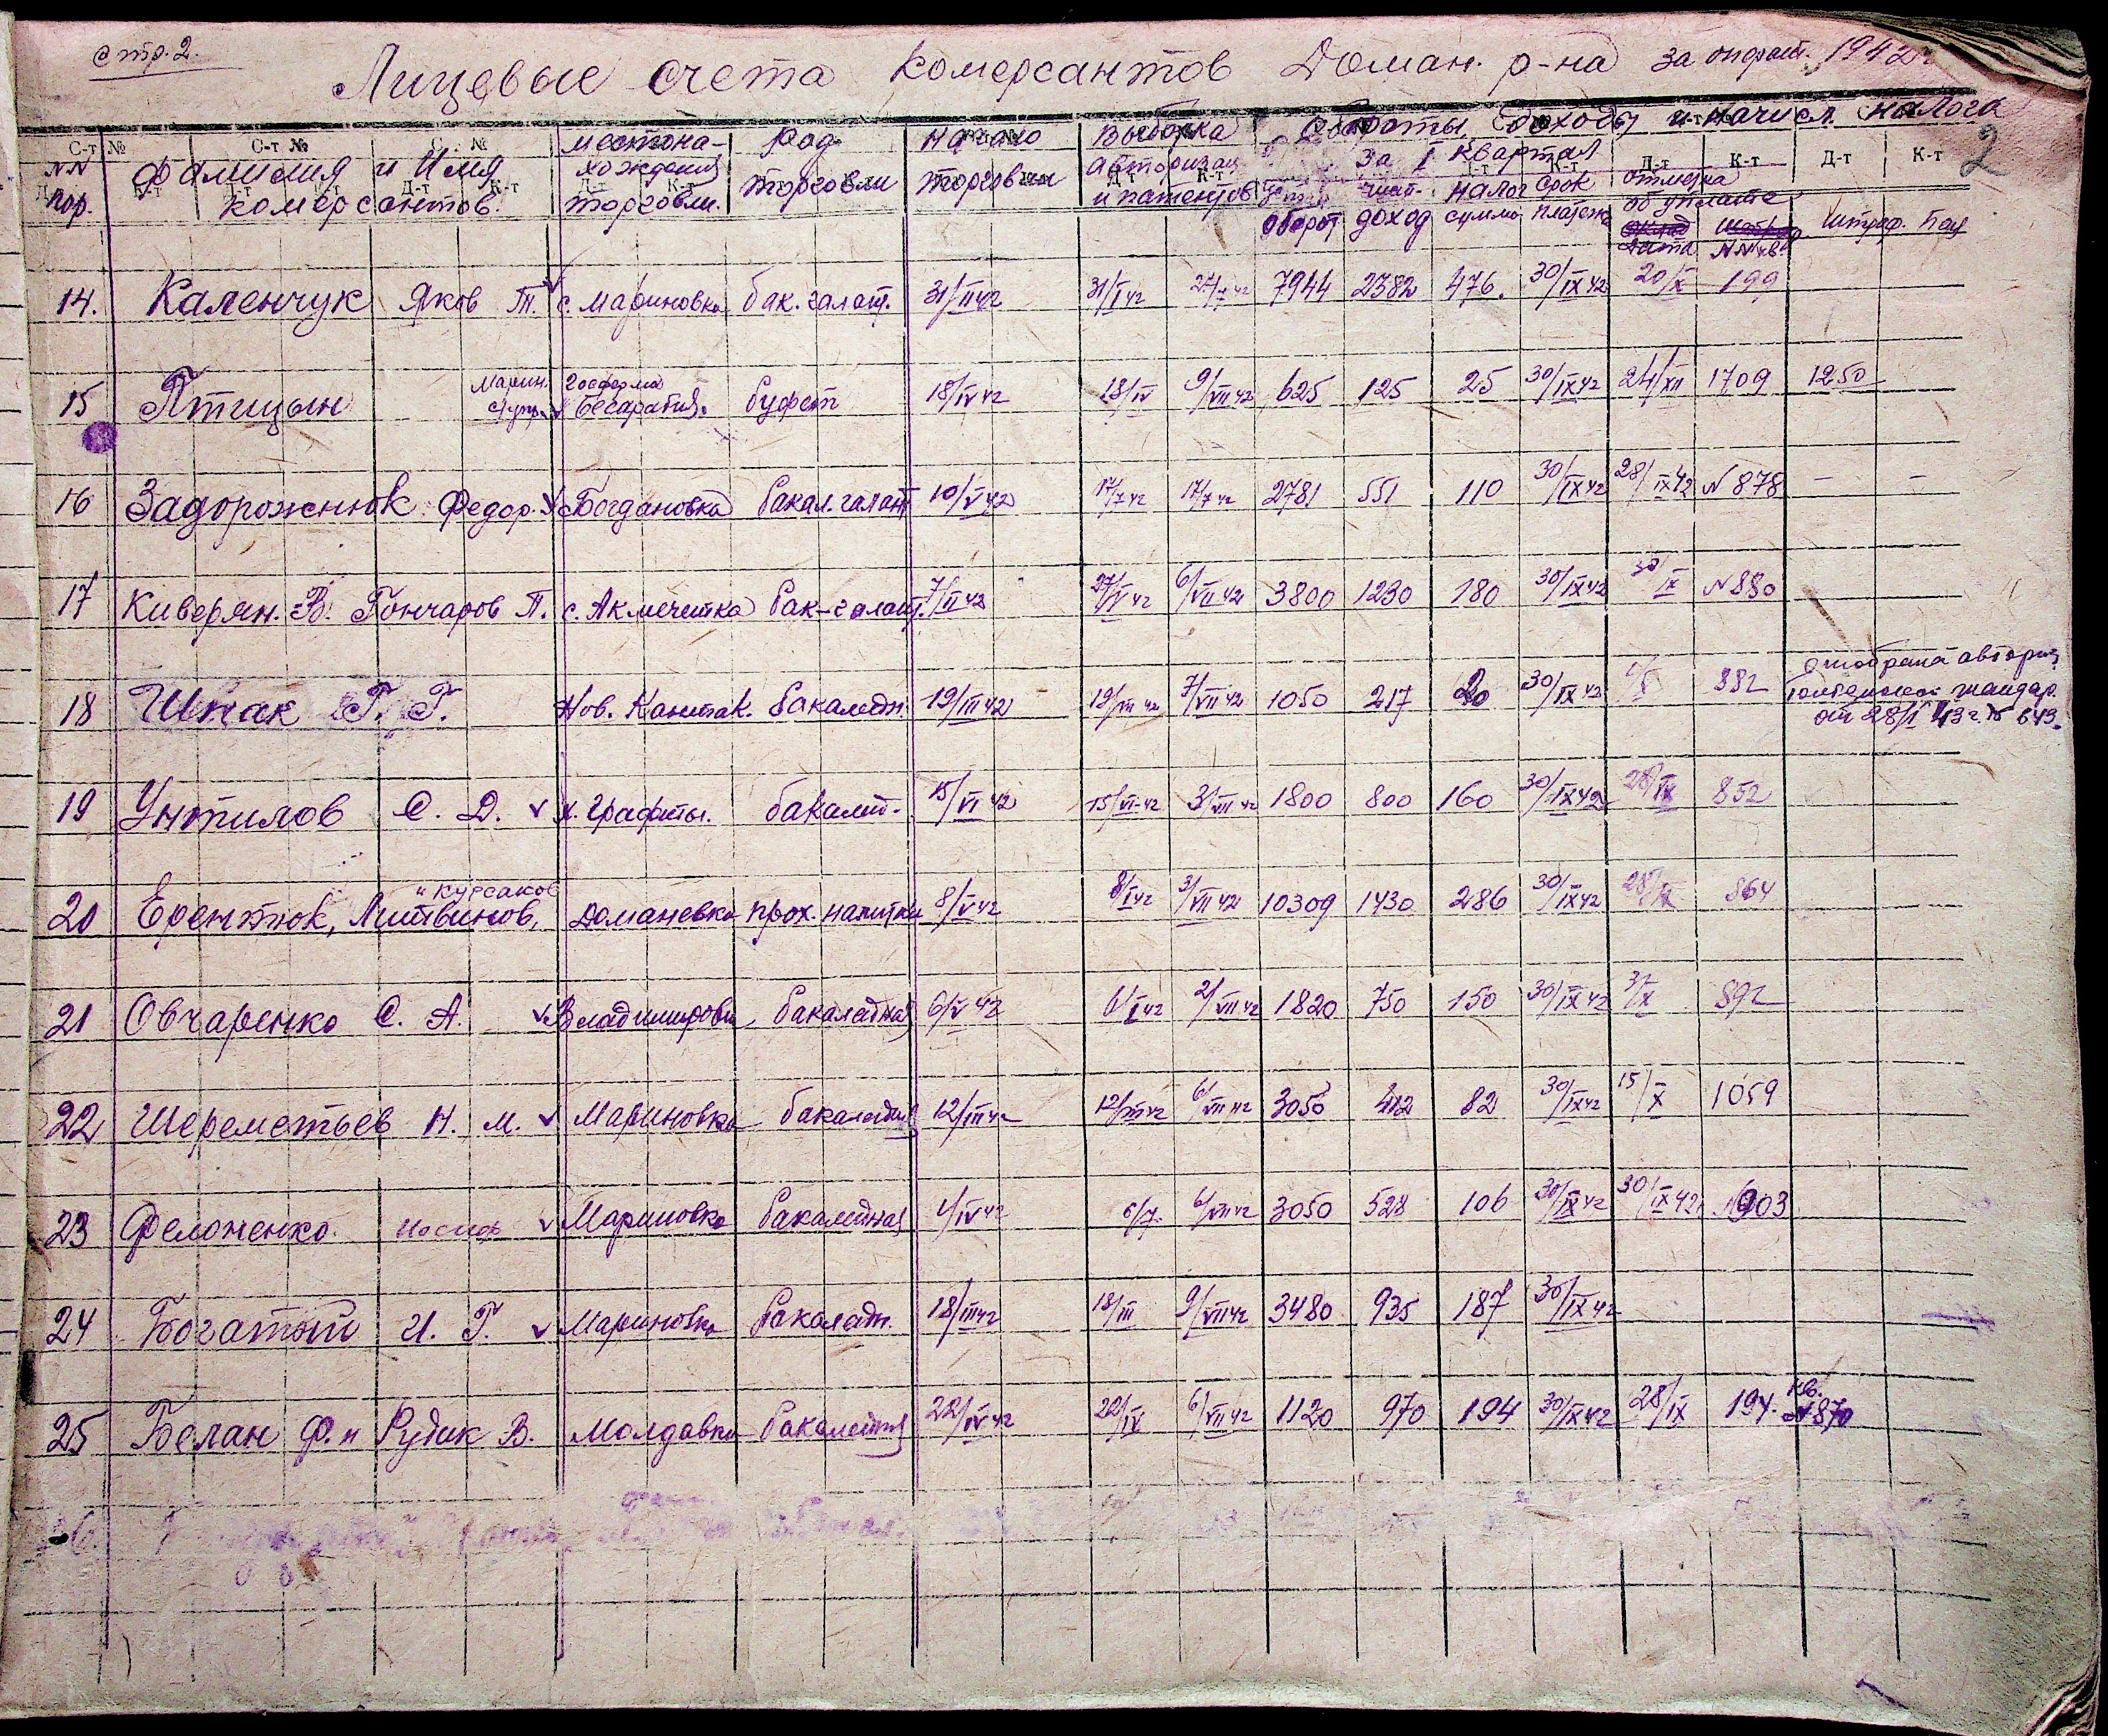 стр. 2.
Лицевые счета комерсантов Доман. р-на за 1942
Обороты доходы и начисл налога
С-т № С-т № С-т №
NN пор. фамилия и Имя комерсантов.
местона-хождения торговли.
Род торговли
Начало торговли
Выборка авторизац и патентов
За I квартал
оборот доход налог сумма срок платежа
отметка об уплате дата NN кв. штраф. Пеня
Д-т К-т Д-т К-т
2
14. Каленчук Яков Т. с. Мариновка бак. галант. 31/II 42 31/I 42 7944 2382 476. 30/IX 42 20/X 199
Марин. госферма
15 Птицын Бесарабия. буфет 18/IV 42 18/IV 9/VII 42 625 125 25 30/IX 42 24/XII 1709 1250
16 Задорожнюк Федор. Богдановка бакал. галант 10/V 42 17/7 42 17/7 42 2781 551 110 30/IX 42 28/IX 42 N 878 – –
17 Киверян. В. Гончаров П. с. Акмечетка бак-галант. 7/II 42 27/V 42 6/VII 42 3800 1230 180 30/IX 42 30/IX N 880
18 Шпак Г. Г. Нов. Кантак. бакалейн. 19/III 42 19/III 42 7/VII 42 1050 217 20 30/IX 42 882 отобрана авториз. жандар. от 28/I 43 г. № 643.
19 Унтилов С. Д. х. Графиты. бакалей. 15/VI 42 15/VI-42 3/VII 42 1800 800 160 30/IX 42 28/IX 852
и Курсаков
20 Ерентюк, Литвинов, Доманевка прох. напитки 8/V 42 8/V 42 3/VII 42 10309 1430 286 30/IX 42 28/IX 864
21 Овчаренко С. А. Владимировка бакалейная 6/V 42 6/V 42 2/VII 42 1820 750 150 30/IX 42 892
22 Шереметьев Н. М. Мариновка бакалейная 12/III 42 12/III 42 6/VII 42 3050 412 82 30/IX 42 15/X 1059
23 Фелоненко Иосиф Мариновка бакалейная 4/IV 42 6/VII 42 3050 528 106 30/IX 42 30/IX 42 903
24 Богатый И. Г. Мариновка бакалейн. 18/III 42 18/III 9/VII 42 3480 935 187 30/IX 42
25 Белан Ф. и Рудик В. Молдавка бакалейная 22/IV 42 22/IV 6/VII 42 1120 970 194 30/IX 42 28/IX 194. кв. N 870